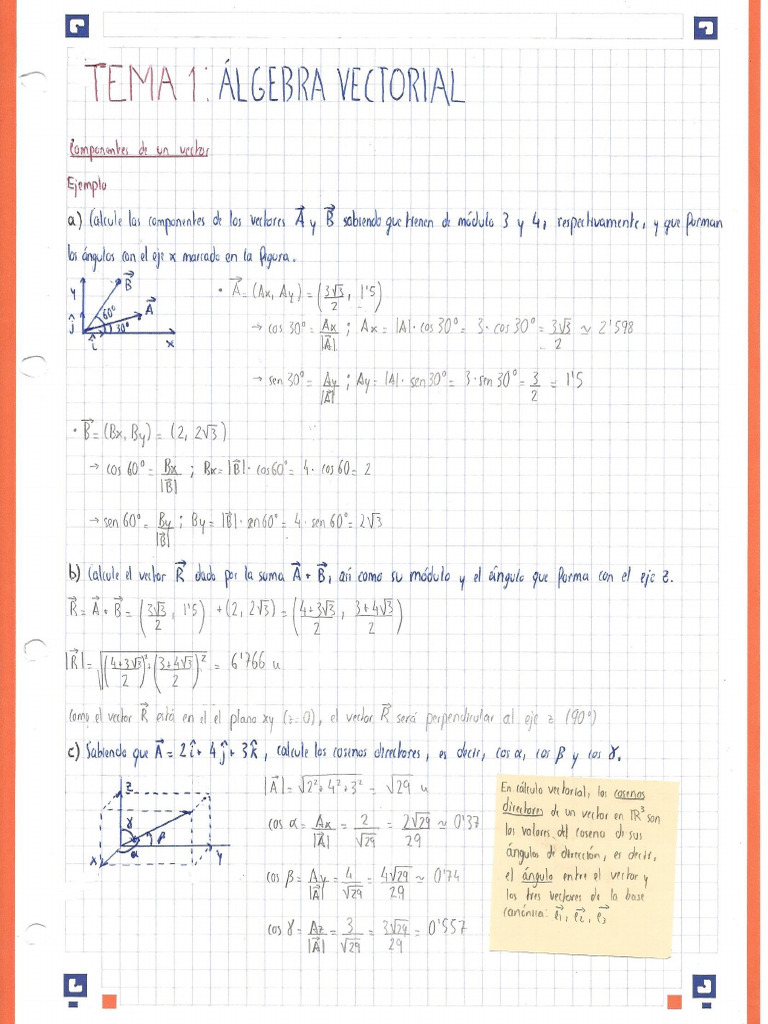 TEMA 1: ÁLGEBRA VECTORIAL
Componentes de un vector
Ejemplo
a) Calcule las componentes de los vectores A⃗ y B⃗ sabiendo que tienen de módulo 3 y 4, respectivamente, y que forman
los ángulos con el eje x marcado en la figura.
Y B⃗ A⃗ 60° 30° ĵ î x
• A⃗ = (Ax, Ay) = (3√3/2, 1'5)
→ cos 30° = Ax/|A⃗| ; Ax = |A| · cos 30° = 3 · cos 30° = 3√3/2 ≃ 2'598
→ sen 30° = Ay/|A⃗| ; Ay = |A| · sen 30° = 3 · sen 30° = 3/2 = 1'5
• B⃗ = (Bx, By) = (2, 2√3)
→ cos 60° = Bx/|B⃗| ; Bx = |B⃗| · cos 60° = 4 · cos 60 = 2
→ sen 60° = By/|B⃗| ; By = |B⃗| · sen 60° = 4 · sen 60° = 2√3
b) Calcule el vector R⃗ dado por la suma A⃗ + B⃗, así como su módulo y el ángulo que forma con el eje z.
R⃗ = A⃗ + B⃗ = (3√3/2, 1'5) + (2, 2√3) = (4+3√3/2, 3+4√3/2)
|R⃗| = √((4+3√3/2)² + (3+4√3/2)²) = 6'766 u
Como el vector R⃗ está en el el plano xy (z=0), el vector R⃗ será perpendicular al eje z (90°)
c) Sabiendo que A⃗ = 2î + 4ĵ + 3k̂, calcule los cosenos directores, es decir, cos α, cos β y cos γ.
z γ β α x y
|A⃗| = √(2² + 4² + 3²) = √29 u
cos α = Ax/|A⃗| = 2/√29 = 2√29/29 ≃ 0'37
cos β = Ay/|A⃗| = 4/√29 = 4√29/29 ≃ 0'74
cos γ = Az/|A⃗| = 3/√29 = 3√29/29 = 0'557
En cálculo vectorial, los cosenos
directores de un vector en ℝ³ son
los valores del coseno de sus
ángulos de dirección, es decir,
el ángulo entre el vector y
los tres vectores de la base
canónica: e⃗₁, e⃗₂, e⃗₃